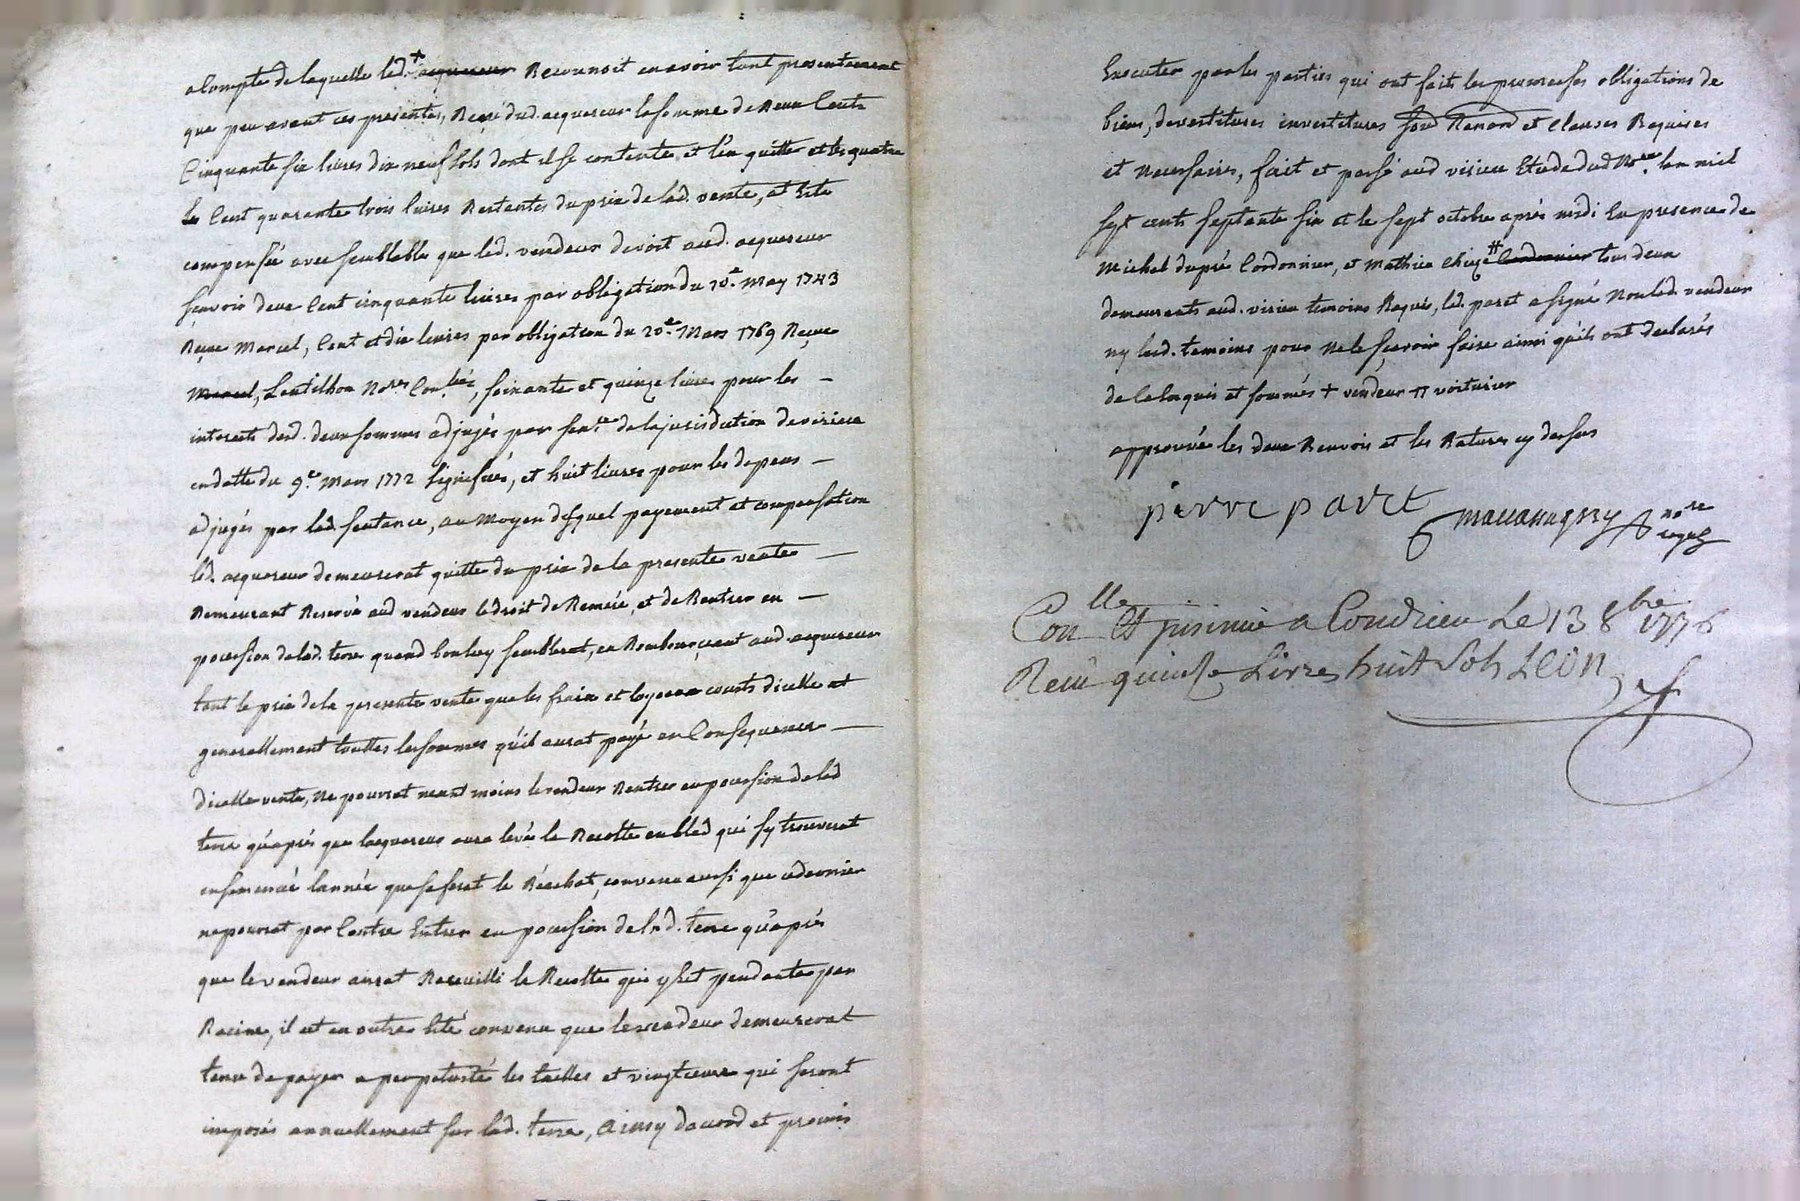 acompte de laquelle led. + acquereur Reconnoit en avoir tant presentement
que peu avant ces presentes, Reçu dud. acquereur la somme de Deux Cents
Cinquante six livres dix neuf sols dont il se contente, et l'en quitte et les quatre
Cent quarante trois livres Restantes du prix de lad. vente, at Eté
compensée avec semblable que led. vendeur devoit aud. acquereur
sçavoir deux Cent cinquante livres par obligation du 10e. May 1743
Reçue Marcel, Cent et dix livres par obligation du 20e. Mars 1769 Reçue
Marcel, Lentillon Nores., soixante et quinze livres pour les —
interests desd. deux sommes adjugés par Sence. de la jurisdiction de virieu
en datte du 9e. Mars 1772 signifiée, et huit livres pour les depens —
adjugés par lad. sentence, au moyen desquel payement et compensation
led. acquereur demeurerat quitte du prix de la presente vente —
Demeurant Reservé aud vendeur le droit de Remeré, et de Rentrer en —
pocession de lad. terre quand bon luy semblerat, en Remboursant aud. acquereur
tant le prix de la presente vente que les frais et loyaux couts d'icelle et
generallement touttes les sommes qu'il aurat payé en Consequence —
dicelle vente, ne pourrat neant moins le vendeur Rentrer en pocession de lad
terre qu'après que lacquereur aura levé la Recolte en bled qui sy trouverat
ensemencé lannée que se ferat le Rachat, convenu aussi que ce dernier
ne pourrat par Contre Entrer en pocession de lad. terre qu'apres
que le vendeur aurat Recueilli la Recolte qui y Est pendante par
Racine, il est en outre Eté convenu que le vendeur demeurerat
tenu de payer a perpetuité les tailles et vingtieme qui seront
imposés annuellement sur lad. terre, Ainsy dacord et promis
Executer par les parties qui ont faits les promesses obligations de
biens, devestitures investitures et Clauses Requises
et Necessaires, fait et passé aud virieu Etude dud Nore. lan mil
sept cents septante six et le sept octobre après midi En presence de
Michel dupré Cordonnier, et Mathieu # Cordonnier tous deux
demeurants aud. virieu temoins Requis, led. paret a signé Non led. vendeur
ny lesd. temoins pour ne le sçavoir faire ainsi qu'ils ont declarés
de ce Enquis et sommés + vendeur # voiturier
approuvé les deux Renvois et les Ratures cy dessus
pierre paret nore royal
Conlle Et insinué a Condrieu Le 13 8bre 1776
Reçu quinze Livres huit Sols LEON